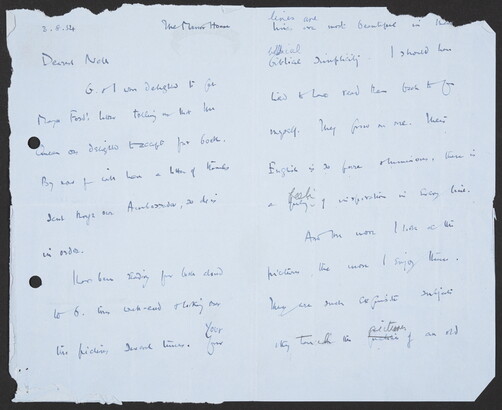 3.5.54
The Manor House
Dearest Nell
G. & I was delighted to get
Major Ford's letter telling us that the
Queen
By now you will have a letter of thanks
sent through our Ambassador, so dis is
in order.
I have been reading your book aloud
to G. this week-end & looking over
the pictures several times. Your
lines are
lines are most beautiful in their
biblical
biblical simplicity. I should have
liked to have read them back to you
myself. They grow on me. Their
English is so pure & luminous, there is
a feeling of inspiration in every line.
And the more I look at the
pictures, the more I enjoy them.
They are such exquisite
pictures
of an old